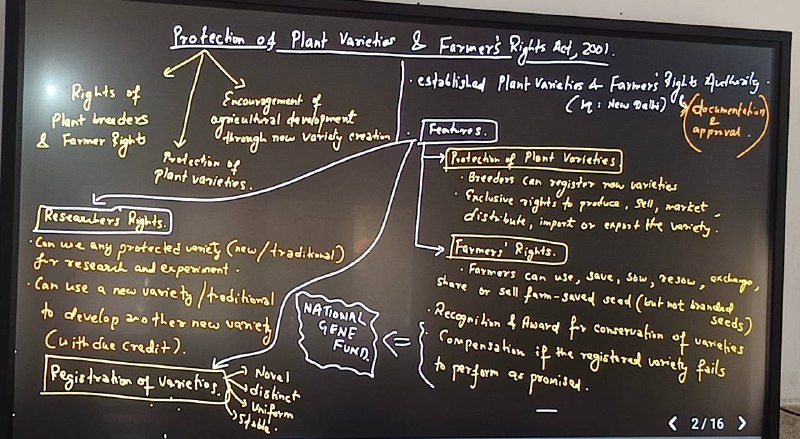 Protection of Plant Varieties & Farmer's Rights Act, 2001.
Rights of
Plant breeders
& Farmer Rights
Encouragement of
agricultural development
through new variety creation
Protection of
plant varieties.
• established Plant Varieties & Farmers' Rights Authority.
(HQ: New Delhi)
(documentation
&
approval.)
Features.
Protection of Plant Varieties
• Breeders can register new varieties
• Exclusive rights to produce, sell, market,
distribute, import or export the variety.
Farmers' Rights.
• Farmers can use, save, sow, resow, exchange,
share or sell farm-saved seed (but not branded
seeds)
• Recognition & Award for conservation of varieties
Compensation if the registered variety fails
to perform as promised.
NATIONAL
GENE
FUND.
Researchers Rights.
• Can use any protected variety (new/traditional)
for research and experiment.
• Can use a new variety/traditional
to develop another new variety
(with due credit).
Registration of varieties.
Novel
distinct
Uniform
Stable.
< 2/16 >